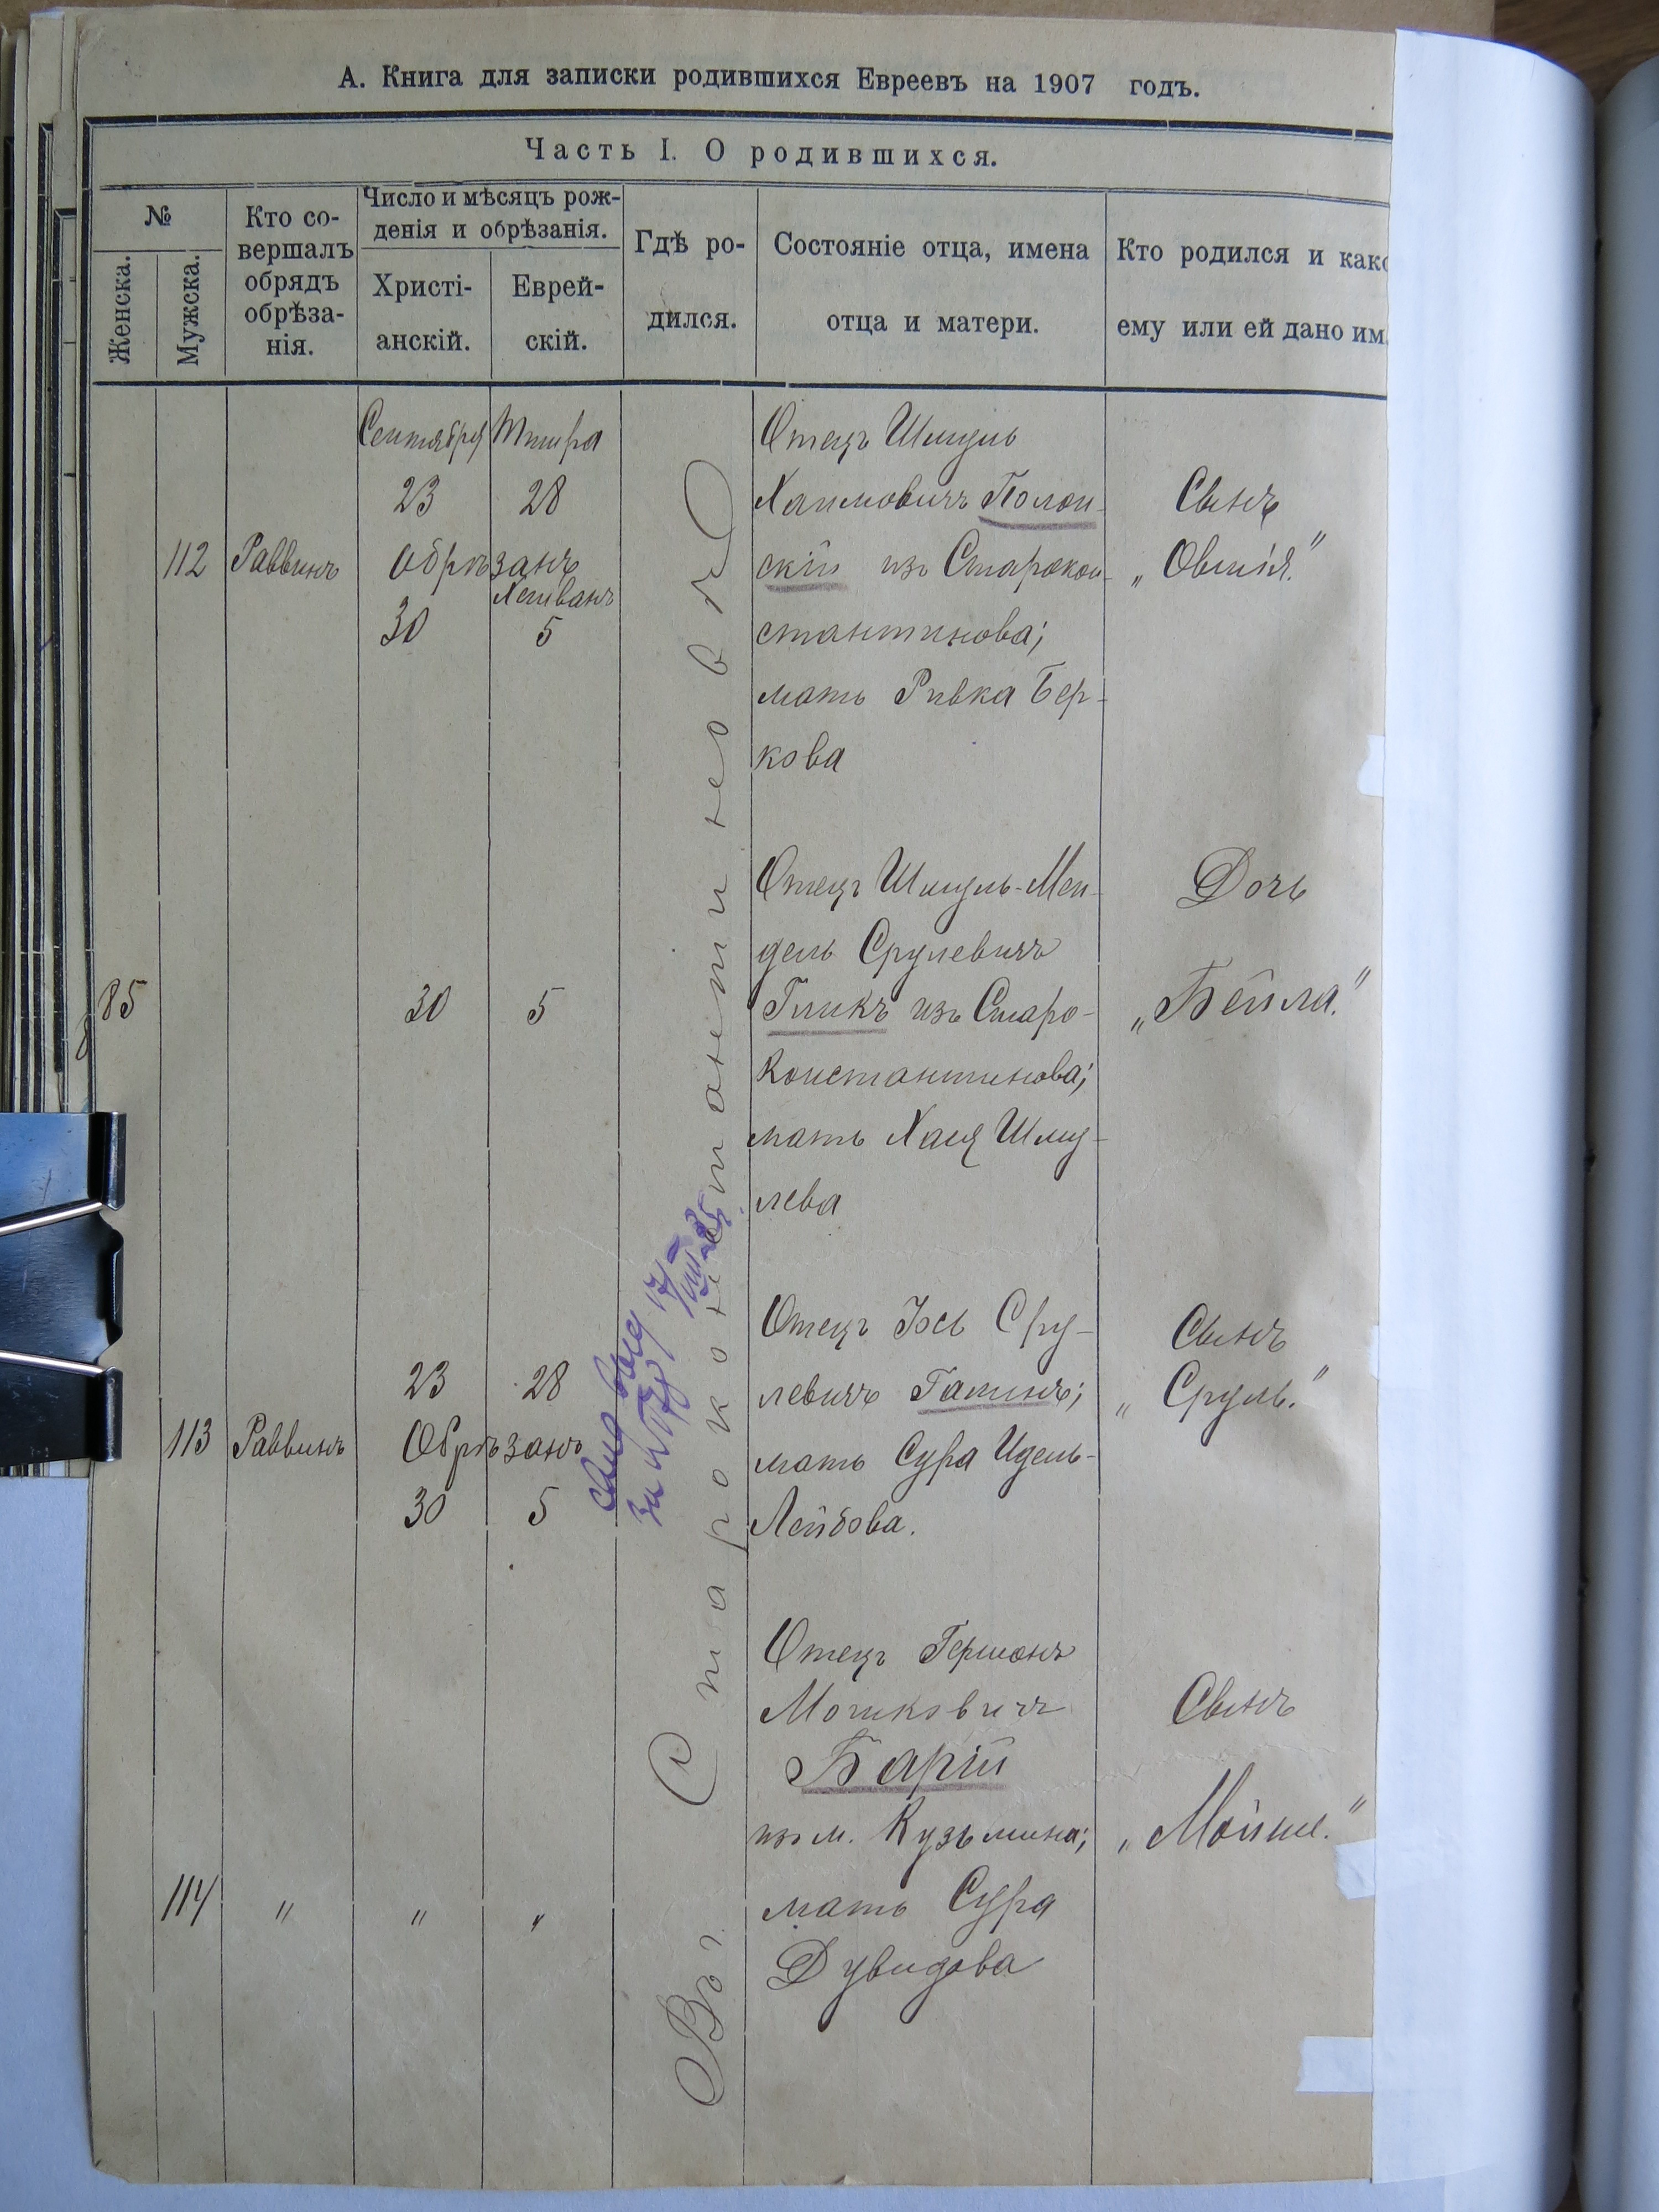 А. Книга для записки родившихся Евреевъ на 1907 годъ.
Часть I. О родившихся.
№
Женска.
Мужска.
Кто со-
вершалъ
обрядъ
обрѣза-
нія.
Число и мѣсяцъ рож-
денія и обрѣзанія.
Христі-
анскій.
Еврей-
скій.
Гдѣ ро-
дился.
Состояніе отца, имена
отца и матери.
Кто родился и како
ему или ей дано им
Въ г. Староконстантиновѣ
112
Раввинъ
Сентября Тишра
23 28
Обрѣзанъ
Хешванъ
30 5
Отецъ Шмуль
Хаимовичъ Полон-
скій изъ Старокон-
стантинова;
мать Ривка Бер-
кова
Сынъ
„Овшія."
85
30 5
Отецъ Шмуль-Мен-
дель Срулевичъ
Гликъ изъ Старо-
Константинова;
мать Хая Шму-
лева
Дочь
„Бейла."
113
Раввинъ
23 28
Обрѣзанъ
30 5
Отецъ Іось Сру-
левичъ Галинъ;
мать Сура Идель-
Лейбова.
Сынъ
„Сруль."
114
" " "
Отецъ Гершонъ
Мошковичъ
Барій
изъ м. Кузьмина;
мать Сура
Дувидова
Сынъ
„Мойше."